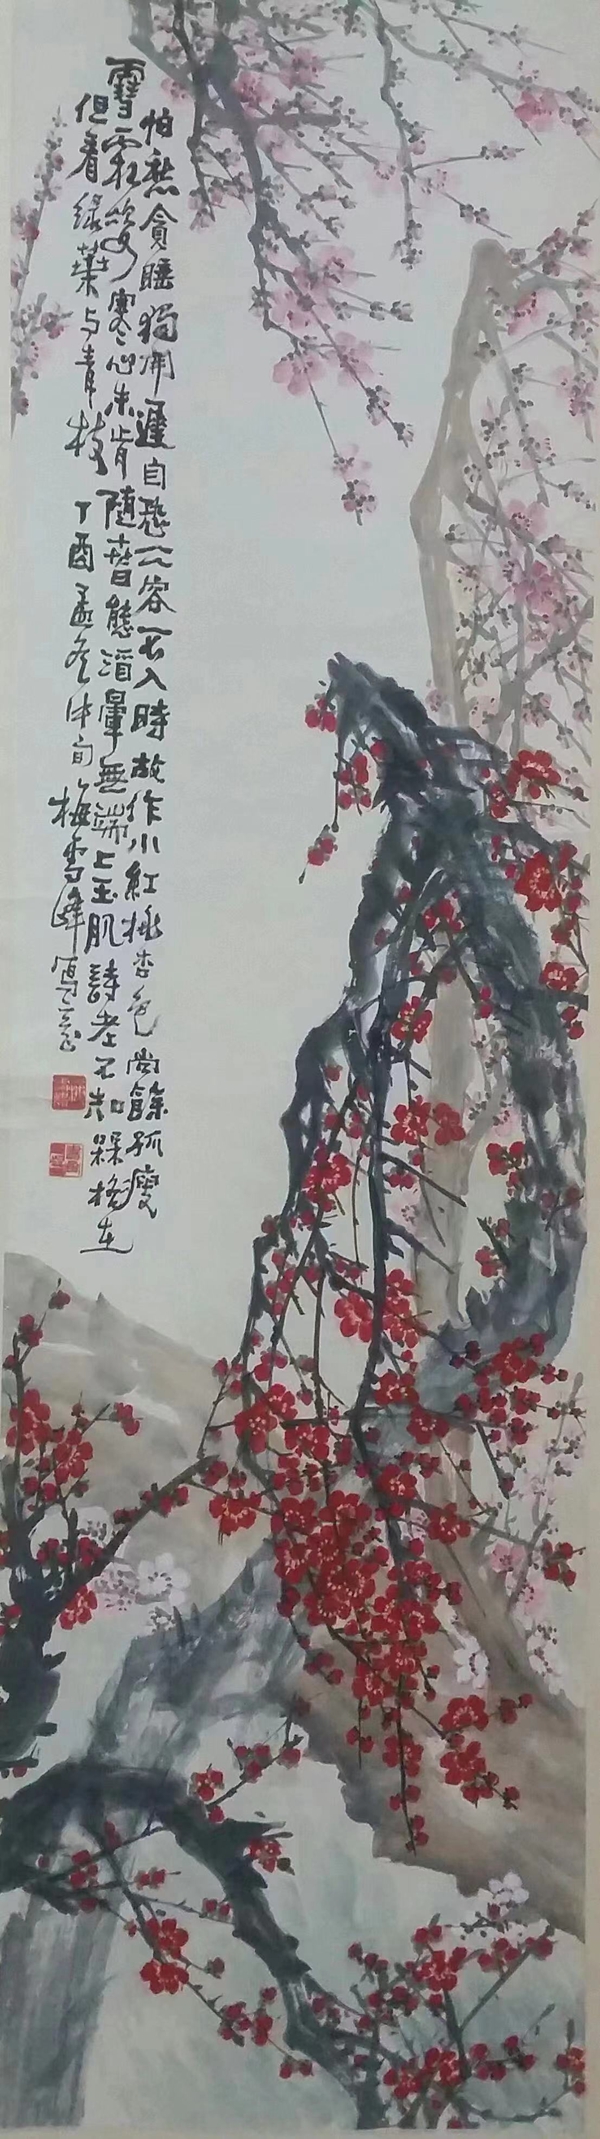 怕愁貪睡獨開遲自恐冰容不入時故作小紅桃杏色尚餘孤瘦
雪霜姿寒心未肯隨春態酒暈無端上玉肌詩老不知槑格在
但看綠葉与青枝 丁酉孟冬中旬梅雪峰寫意